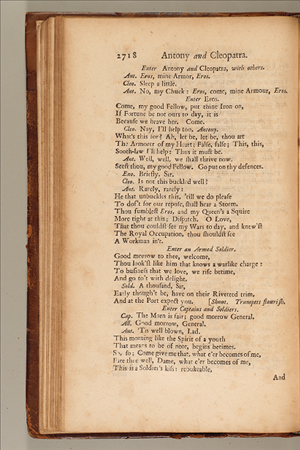 2718 Antony and Cleopatra.
Enter Antony and Cleopatra, with others.
Ant. Eros, mine Armor, Eros.
Cleo. Sleep a little.
Ant. No, my Chuck: Eros, come, mine Armour, Eros.
Enter Eros.
Come, my good Fellow, put thine Iron on,
If Fortune be not ours to day, it is
Because we brave her. Come.
Cleo. Nay, I'll help too, Antony.
What's this for? Ah, let be, let be, thou art
The Armorer of my Heart: False, false; This, this,
Sooth-law I'll help: Thus it must be.
Ant. Well, well, we shall thrive now.
Seest thou, my good Fellow. Go put on thy defences.
Eros. Briefly, Sir.
Cleo. Is not this buckled well?
Ant. Rarely, rarely:
He that unbuckles this, 'till we do please
To doff't for our repose, shall hear a Storm.
Thou fumblest Eros, and my Queen's a Squire
More tight at this; Dispatch. O Love,
That thou couldst see my Wars to day, and knew'st
The Royal Occupation, thou shouldst see
A Workman in't.
Enter an Armed Soldier.
Good morrow to thee, welcome,
Thou look'st like him that knows a warlike charge:
To business that we love, we rise betime,
And go to't with delight.
Sold. A thousand, Sir,
Early though't be, have on their Riveted trim,
And at the Port expect you. [Shout. Trumpets flourish.
Enter Captains and Soldiers.
Cap. The Morn is fair; good morrow General.
All. Good morrow, General.
Ant. 'Tis well blown, Lad.
This morning like the Spirit of a youth
That means to be of note, begins betimes.
So, so; Come give me that, what e'er becomes of me,
Fare thee well, Dame, what e'er becomes of me,
This is a Soldier's kiss: rebukeable,
And